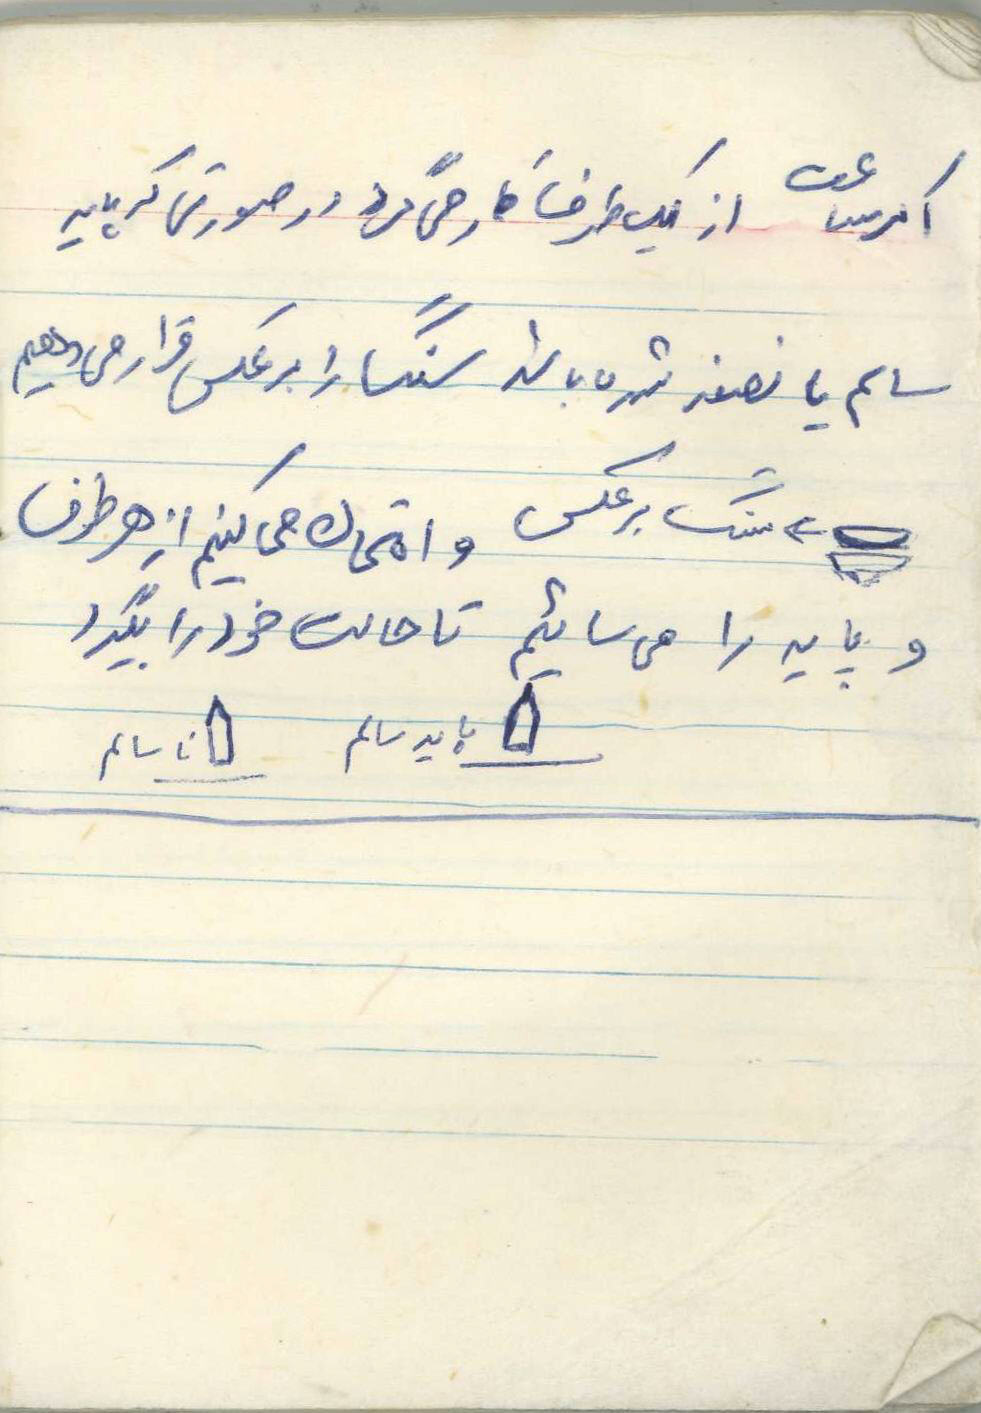 اگر ساعت از یک طرف کار می‌کرد در صورتی که پایه
سالم یا نصفه شده باشد سنگ را برعکس قرار می‌دهیم
سنگ برعکس و امتحان می‌کنیم از هر طرف
و پایه را می‌سائیم تا حالت خود را بگیرد
پایه سالم نا سالم